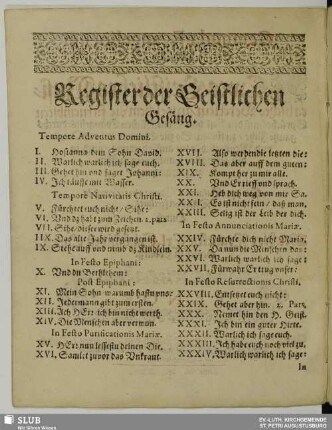 Register der Geistlichen
Gesäng.
Tempore Adventus Domini.
I. Hosianna dem Sohn David.
II. Warlich warlich ich sage euch.
III. Gehet hin und saget Johanni:
IV. Ich täuffe mit Wasser.
Tempore Nativitatis Christi.
V. Fürchtet euch nicht/ Sihe:
VI. Und dz habt zum Zeichen 2. pars
VII. Sihe/ dieser wird gesetzt.
IIX. Das alte Jahr vergangen ist.
IX. Stehe auff und nimb dz Kindlein.
In Festo Epiphani:
X. Und du Bethlehem:
Post Epiphani:
XI. Mein Sohn warumb hastu uns:
XII. Jederman gibt zum ersten.
XIII. Ich HErr ich bin nicht werth.
XIV. Die Menschen aber verwun.
In Festo Purificationis Mariæ.
XV. HErr nun lessestu deinen Die.
XVI. Samlet zuvor das Unkraut.
XVII. Also werden die letzten die:
XVIII. Das aber auff dem gutem:
XIX. Kompt her zu mir alle.
XX. Und Er rieff und sprach.
XXI. Heb dich weg von mir Sa.
XXII. Es ist nicht fein/ das man.
XXIII. Selig ist der Leib der dich.
In Festo Annunciationis Mariæ.
XXIV. Fürchte dich nicht Maria.
XXV. Da nun die Menschen das:
XXVI. Warlich warlich ich sage:
XXVII. Fürwahr Er trug unser:
In Festo Resurrectionis Christi.
XXVIII. Entsetzet euch nicht:
XXIX. Gehet aber hin. 2. Pars,
XXX. Nemet hin den H. Geist.
XXXI. Ich bin ein guter Hirte.
XXXII. Warlich ich sage euch.
XXXIII. Ich habe euch noch viel zu.
XXXIV. Warlich warlich ich sage:
In
SLUB
Wir führen Wissen.
EV.-LUTH. KIRCHGEMEINDE
ST. PETRI AUGUSTUSBURG